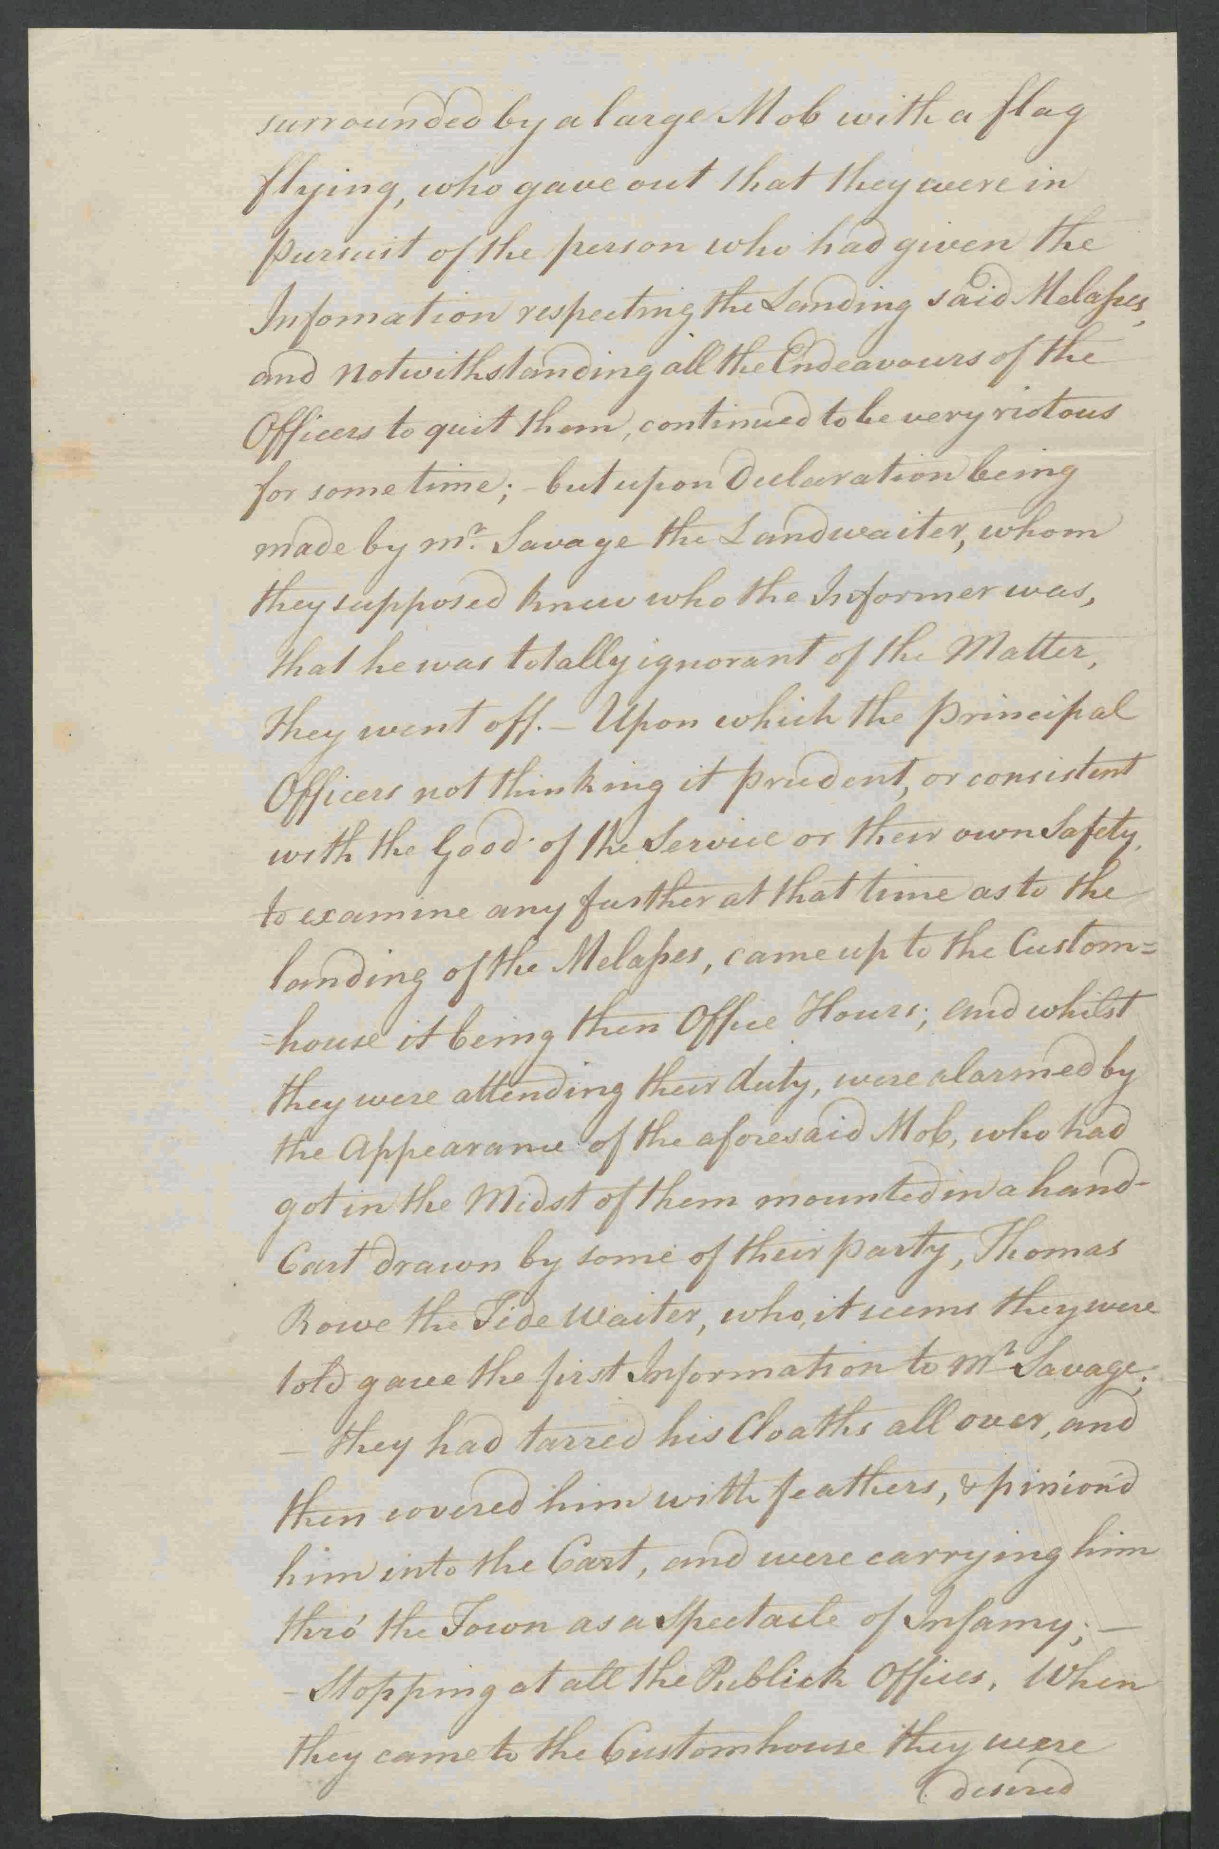 surrounded by a large Mob with a flag
flying, who gave out that they were in
pursuit of the person who had given the
Infomation respecting the Landing said Melaſses,
and notwithstanding all the Endeavours of the
Officers to quit them, continued to be very riotous
for some time; - but upon Declaration being
made by Mr. Savage the Landwaiter, whom
they supposed knew who the Informer was,
that he was totally ignorant of the Matter,
they went off. - Upon which the principal
Officers not thinking it prudent, or consistent
with the Good of the Service or their own Safety,
to examine any further at that time as to the
landing of the Melaſses, came up to the Custom=
=house it being then Office Hours; and whilst
they were attending their duty, were alarmed by
the Appearance of the aforesaid Mob, who had
got in the Midst of them mounted in a hand-
Cart drawn by some of their party, Thomas
Rowe the Tide Waiter, who, it seems they were
told gave the first Information to Mr Savage;
- they had tarred his Cloaths all over, and
then covered him with feathers, & pinion'd
him into the Cart, and were carrying him
thro' the Town as a Spectacle of Infamy; -
- Stopping at all the Publick Offices, When
they came to the Customhouse they were
desired